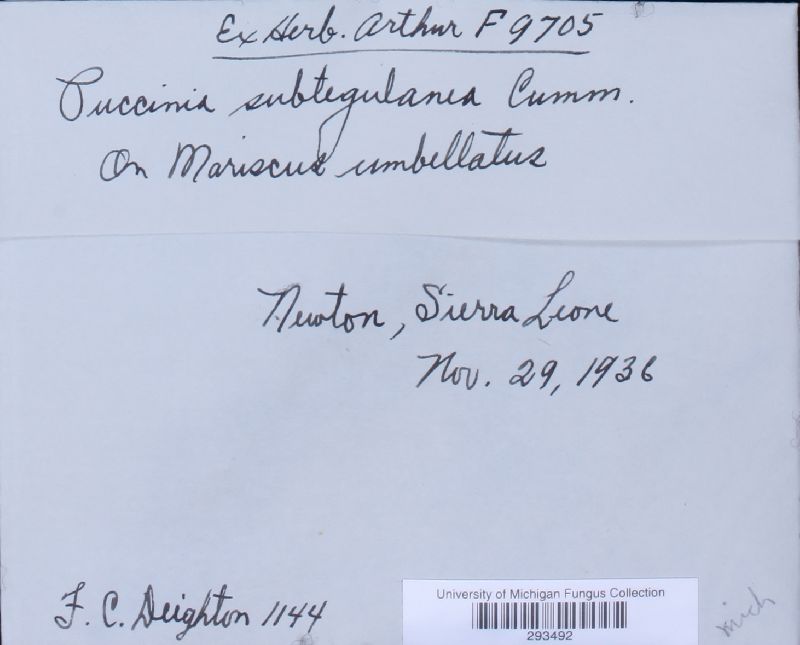 Ex Herb. Arthur F 9705
Puccinia subtegulanea Cumm.
On Mariscus umbellatus
Newton, Sierra Leone
Nov. 29, 1936
F. C. Deighton 1144
University of Michigan Fungus Collection
293492
mich